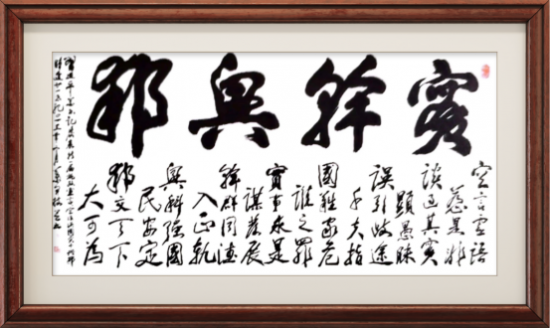 實幹興邦
空言虛語
惹是非
談過其實
顯愚昧
誤引歧途
千夫指
國難家危
誰之罪
實事求是
謀發展
幹群同德
入正軌
興科強國
民安定
邦文天下
大可為